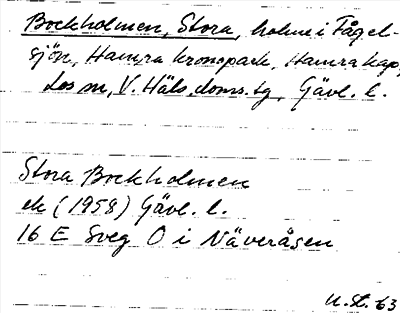 Bockholmen, Stora, holme i Fågel-
sjön, Hamra kronopark, Hamra kap,
Los sn, V. Häls. doms. tg, Gävl. l.
Stora Bockholmen
ek (1958) Gävl. l.
16 E Sveg O i Näveråsen
U. St. 63